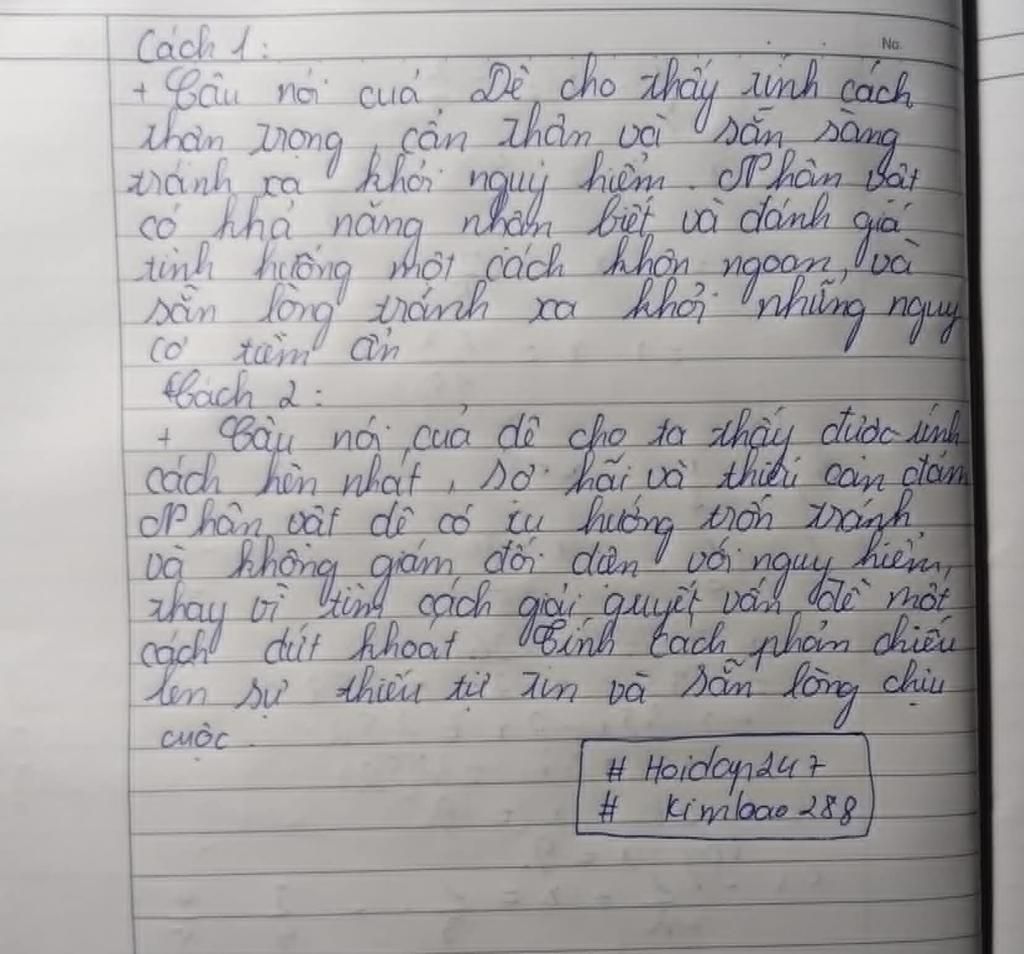 No.
Cách 1:
+ Câu nói của Dê cho thấy tính cách
thận trọng, cẩn thận và sẵn sàng
tránh xa khỏi nguy hiểm. Nhân vật
có khả năng nhận biết và đánh giá
tình huống một cách khôn ngoan, và
sẵn lòng tránh xa khỏi những nguy
cơ tiềm ẩn
Cách 2:
+ Câu nói của dê cho ta thấy được tính
cách hèn nhát, sợ hãi và thiếu can đảm
Nhân vật dê có xu hướng trốn tránh
và không giám đối diện với nguy hiểm,
thay vì tìm cách giải quyết vấn đề một
cách dứt khoát Tính cách phản chiếu
lên sự thiếu tự tin và sẵn lòng chịu
cuộc.
# Hoidap247
# Kimbao288